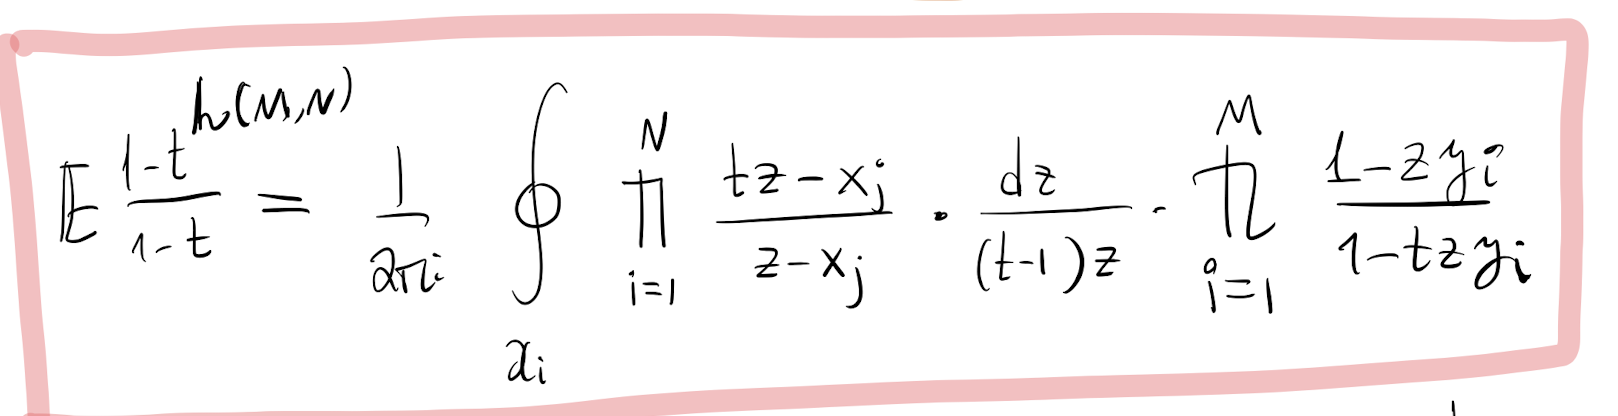 𝔼 \frac{1-t^{h(M,N)}}{1-t} = \frac{1}{2πi} \oint_{x_i} \prod_{i=1}^{N} \frac{tz-x_j}{z-x_j} · \frac{dz}{(t-1)z} · \prod_{i=1}^{M} \frac{1-zy_i}{1-tzy_i}